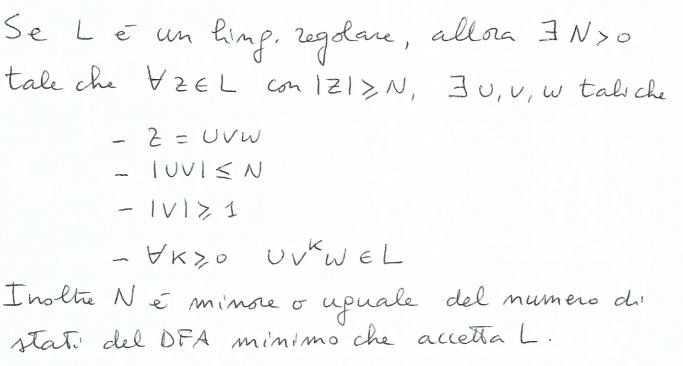 Se L è un ling. regolare, allora ∃ N>0
tale che ∀ z∈L con |z|⩾N, ∃ u, v, w tali che
- z = uvw
- |uv| ≤ N
- |v| ⩾ 1
- ∀k⩾0 uvᵏw ∈ L
Inoltre N è minore o uguale del numero di
stati del DFA minimo che accetta L.